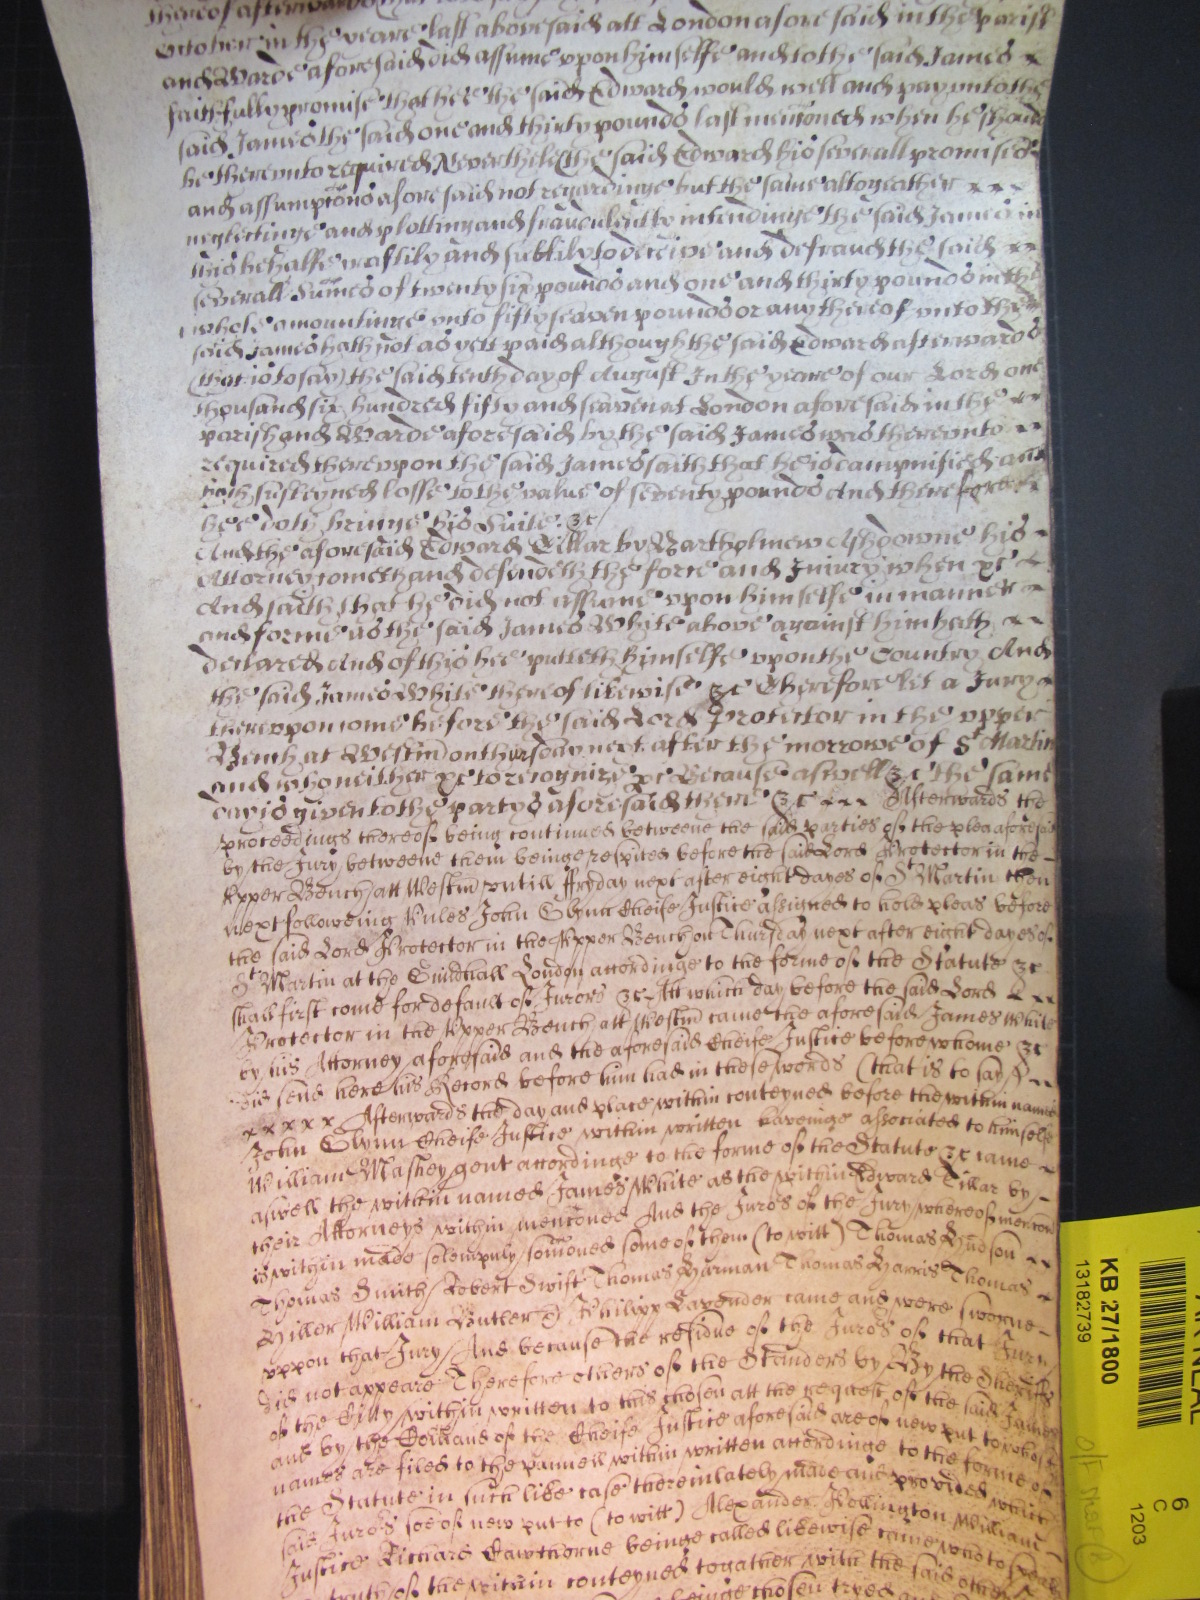 thereof afterwards
October in the yeare last abovesaid att London afore said in the parish
and Warde afore said did assume upon himselfe and to the said James
faithfully promise that hee the said Edward would well and pay unto the
said James the said one and thirty pounds last mencioned when he should
be thereunto required Neverthelesse the said Edward his severall promises
and assumptions afore said not regardinge but the same altogeather
neglectinge and plottinge and fraudulently intendinge the said James in
this behalfe craftily and subtilly to deceive and defraud the said
severall Summes of twenty six pounds and one and thirty pounds in the
whole amountinge unto fifty seaven pounds or any thereof unto the
said James hath not as yett paid although the said Edward afterwards
(that is to say) the said tenth day of August In the yeare of our Lord one
thousand six hundred fifty and seaven at London afore said in the
parish and Warde afore said by the said James was thereunto
required thereupon the said James saith that he is dampnified and
hath susteyned losse to the value of seventy pounds And therefore
hee doth bringe his Suite &c
And the aforesaid Edward Tillar by Bartholmew Ashdowne his
Attorney cometh and defendeth the force and Injury when &c
And saith that he did not assume upon himselfe in manner
and forme as the said James White above against him hath
declared And of this hee putteth himselfe upon the Country And
the said James White thereof likewise &c Therefore let a Jury
thereuppon come before the said Lord Protector in the upper
Bench at Westm on thursday next after the morrowe of St Martin
and who neither &c to recognize &c Because aswell &c the same
day is given to the partys afore said there &c Afterwards the
proceedings thereof being continued betweene the said parties of the plea aforesaid
by the Jury betweene them beinge respited before the said Lord Protector in the
Upper Bench att Westm untill ffryday next after eight dayes of St Martin then
next followeing Unles John Glynn Cheife Justice assigned to hold pleas before
the said Lord Protector in the Upper Bench on Thursday next after eight dayes of
St Martin at the Guildhall London accordinge to the forme of the Statute &c
shall first come for default of Jurors &c Att which day before the said Lord
Protector in the Upper Bench att Westm came the aforesaid James White
by his Attorney aforesaid and the aforesaid Cheife Justice before whome &c
did send here his Record before him had in these words (that is to say)
x x x x x Afterwards the day and place within conteyned before the within named
John Glynn Cheife Justice within written haveinge associated to himselfe
William Mashey gent accordinge to the forme of the Statute &c came
aswell the within named James White as the within Edward Tillar by
their Attorneys within mencioned And the Jurors of the Jury whereof mencion
is within made solempnly somoned some of them (to witt) Thomas Hudson
Thomas Smith Robert Swift Thomas Harman Thomas Harris Thomas
Hiller William Butler & Philipp Lavender came and were sworne
uppon that Jury And because the residue of the Jurors of that Jury
did not appeare Therefore others of the Standers by By the Sheriffs
of the Citty within written to this chosen att the request of the said James
and by the Comand of the Cheife Justice aforesaid are of new put to whose
names are filed to the pannell within written accordinge to the forme of
the Statute in such like case thereinlately made and provided which
said Jurors soe of new put to (to witt) Alexander Rollington William
Justice Richard Cawthorne beinge called likewise came who to speake
truth of the within conteyned togather with the said other
beinge chosen tryed and
KB 27/1800
13182739
6
C
1203